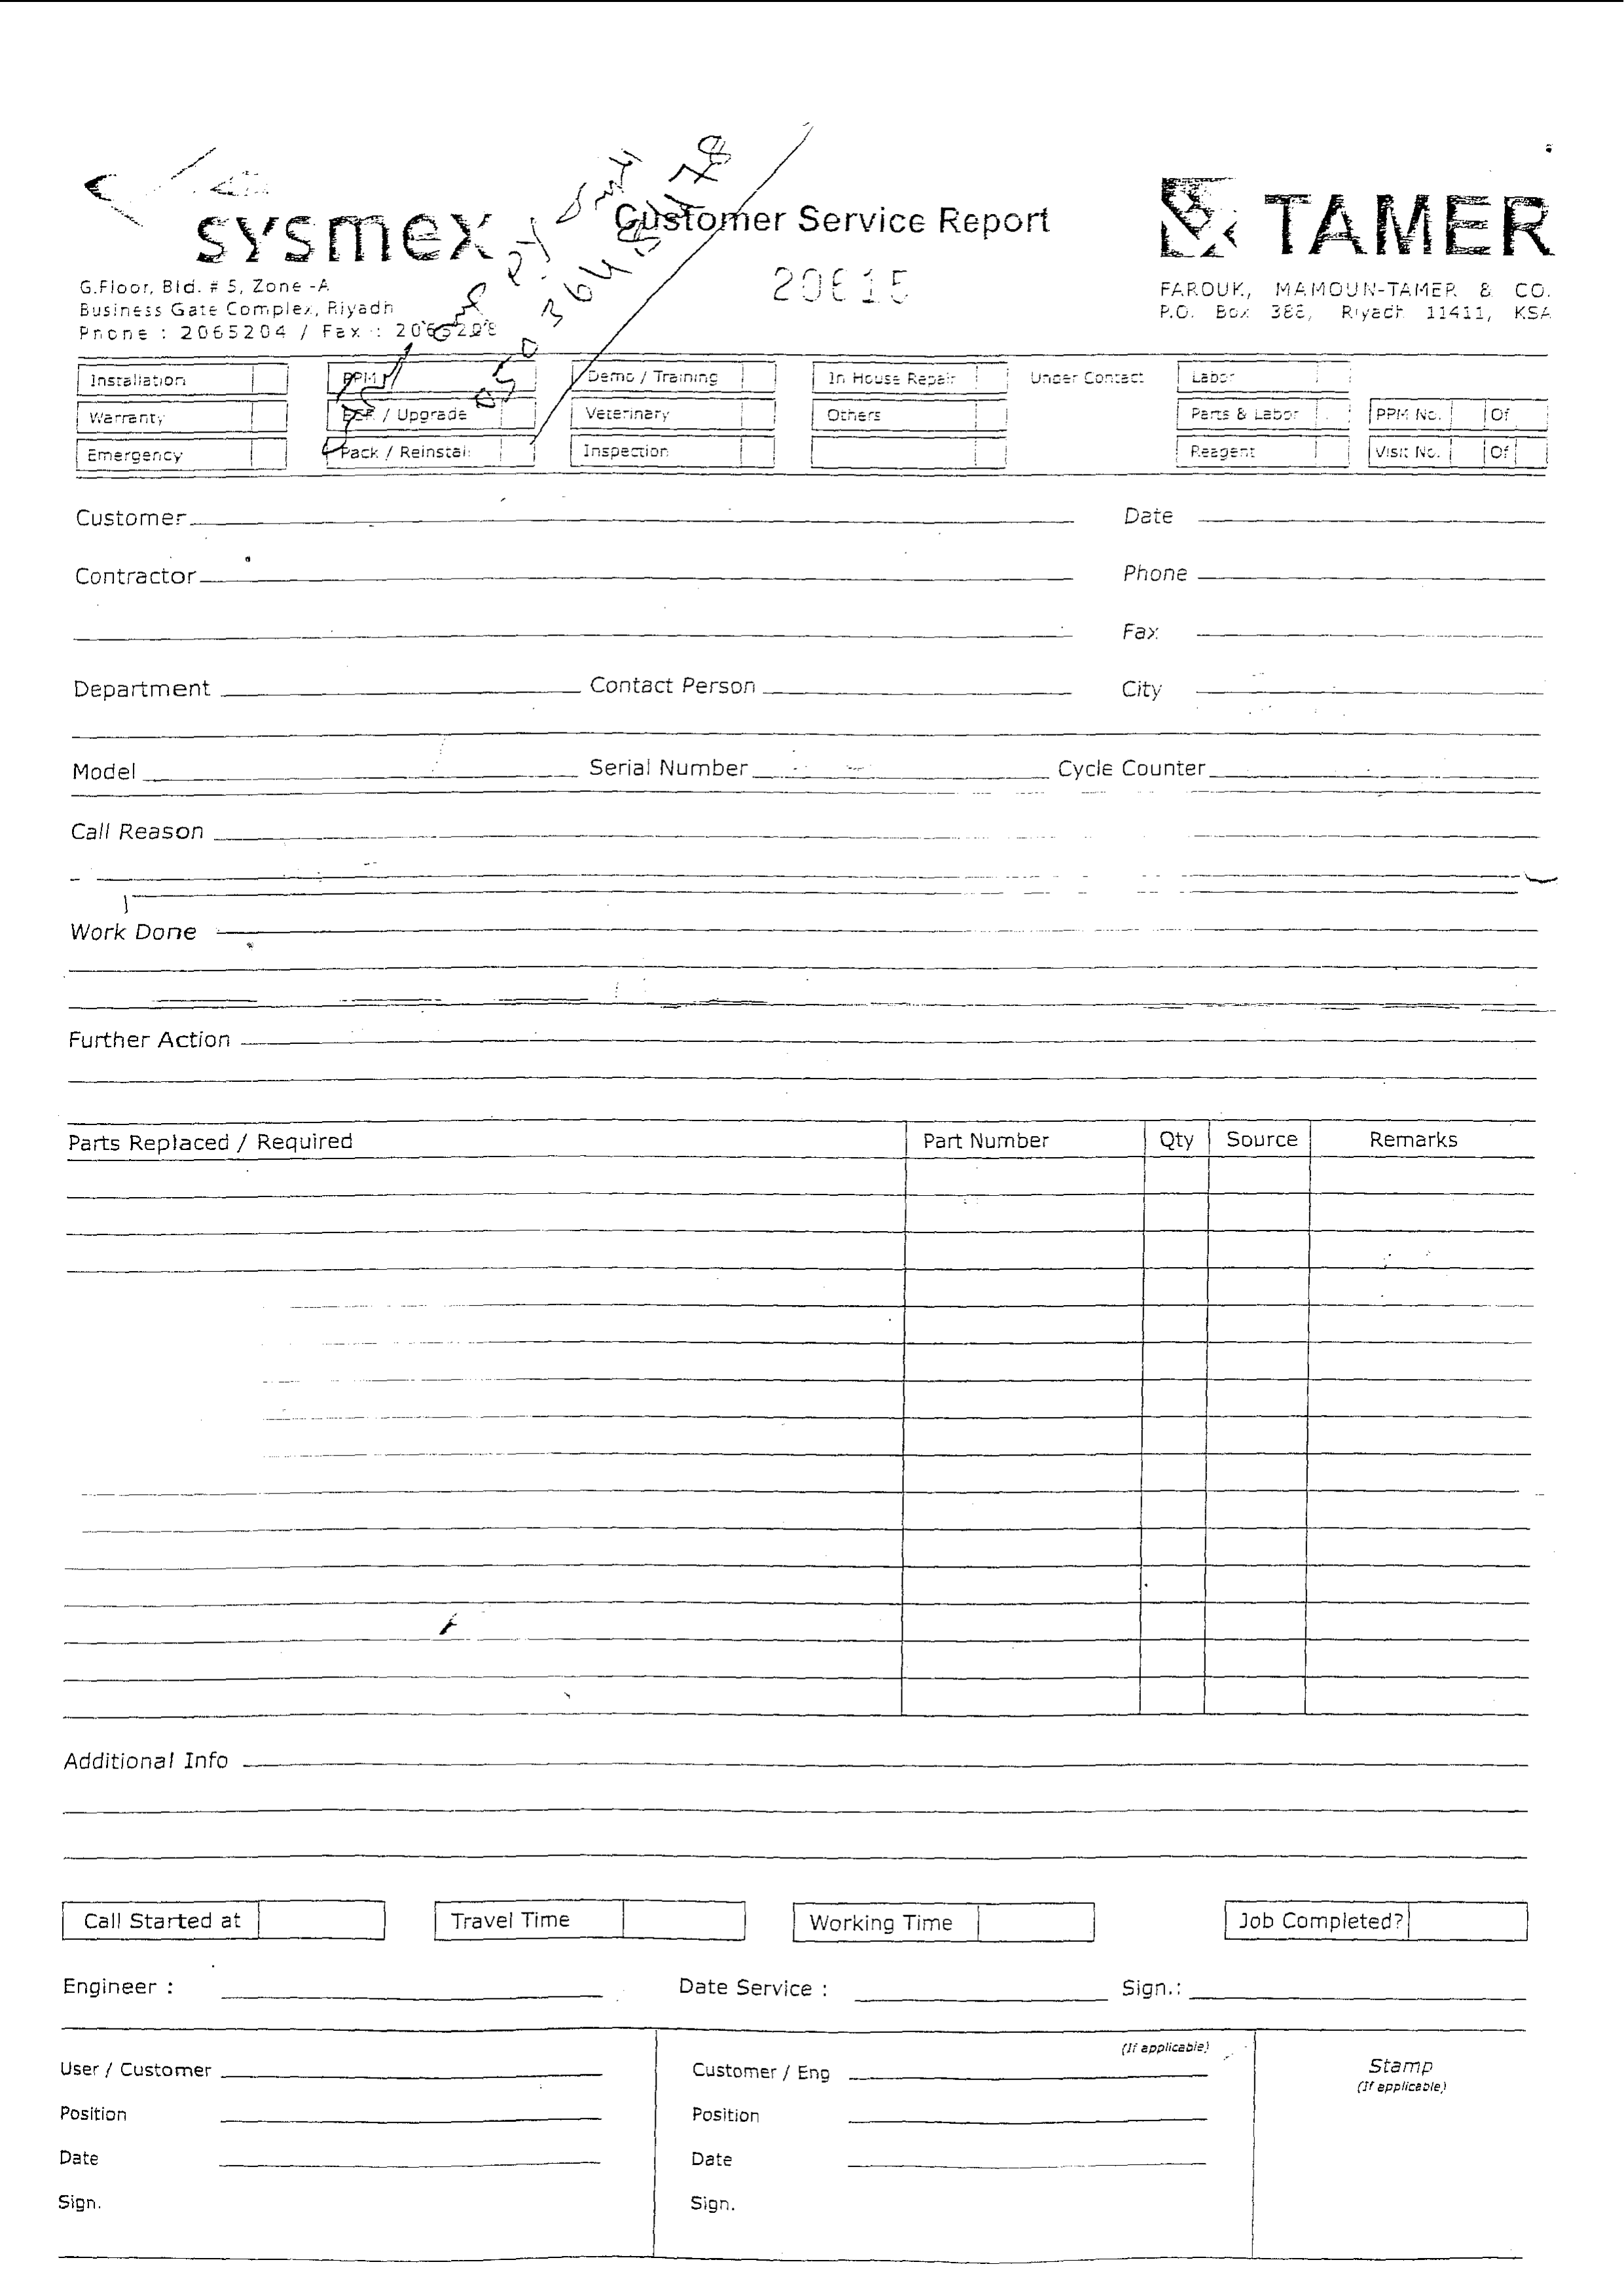 sysmex
Customer Service Report
TAMER
20615
G.Floor, Bld. # 5, Zone -A
Business Gate Complex, Riyadh
Phone : 2065204 / Fax : 2065208
FAROUK, MAMOUN-TAMER & CO.
P.O. Box 388, Riyadh 11411, KSA
Installation PPM Demo / Training In House Repair Under Contact Labor
Warranty / Upgrade Veterinary Others Parts & Labor PPM No. Of
Emergency Pack / Reinstal. Inspection Reagent Visit No. Of
Customer Date
Contractor Phone
Fax
Department Contact Person City
Model Serial Number Cycle Counter
Call Reason
Work Done
Further Action
Parts Replaced / Required Part Number Qty Source Remarks
Additional Info
Call Started at Travel Time Working Time Job Completed?
Engineer : Date Service : Sign.:
(If applicable)
User / Customer Customer / Eng Stamp
(If applicable)
Position Position
Date Date
Sign. Sign.